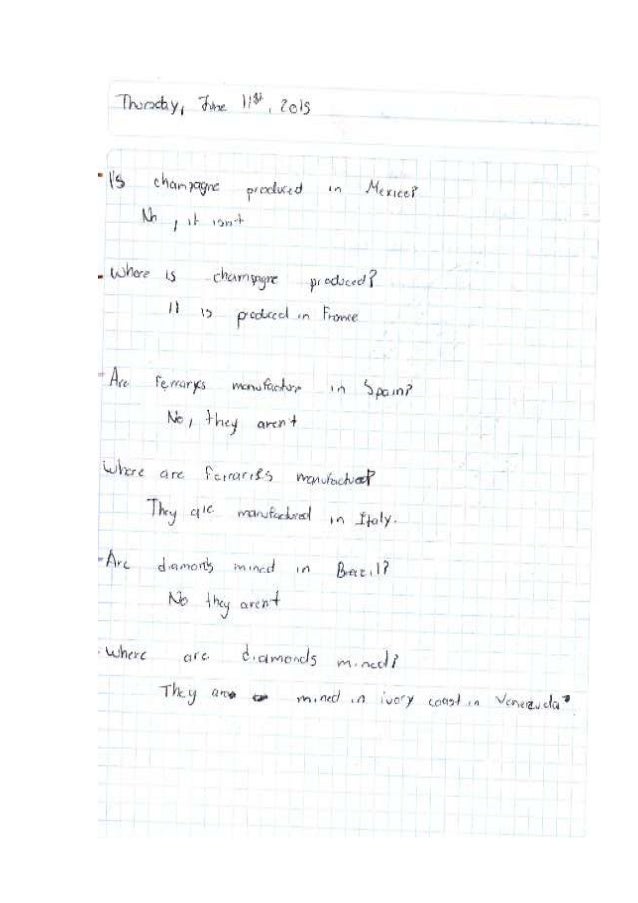 Thursday, June 11st, 2015
- Is champagne produced in Mexico?
No, it isn't
- Where is champagne produced?
It is produced in France
- Are Ferrarys manufacture in Spain?
No, they aren't
Where are Ferraries manufactued?
They are manufactured in Italy.
- Are diamonts mined in Brazil?
No they arent
- Where are diamonds mined?
They are mined in ivory coast in Venezuela?